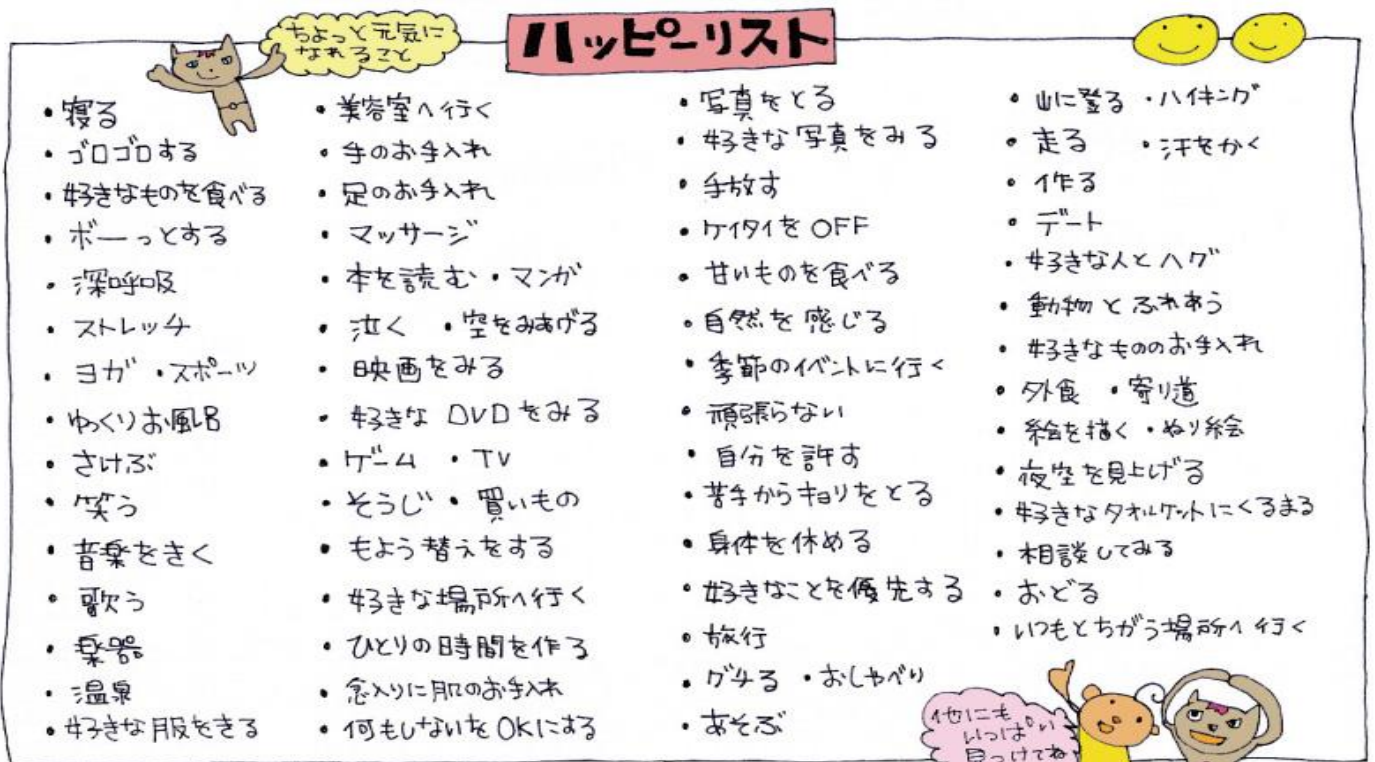 ちょっと元気に
なれること
ハッピーリスト
・寝る
・ゴロゴロする
・好きなものを食べる
・ボーっとする
・深呼吸
・ストレッチ
・ヨガ ・スポーツ
・ゆっくりお風呂
・さけぶ
・笑う
・音楽をきく
・歌う
・楽器
・温泉
・好きな服をきる
・美容室へ行く
・手のお手入れ
・足のお手入れ
・マッサージ
・本を読む ・マンガ
・泣く ・空をみあげる
・映画をみる
・好きな DVDをみる
・ゲーム ・TV
・そうじ ・買いもの
・もよう替えをする
・好きな場所へ行く
・ひとりの時間を作る
・念入りに肌のお手入れ
・何もしないをOKにする
・写真をとる
・好きな写真をみる
・手放す
・ケイタイをOFF
・甘いものを食べる
・自然を感じる
・季節のイベントに行く
・頑張らない
・自分を許す
・苦手からキョリをとる
・身体を休める
・好きなことを優先する
・旅行
・グチる ・おしゃべり
・あそぶ
・山に登る ・ハイキング
・走る ・汗をかく
・作る
・デート
・好きな人とハグ
・動物とふれあう
・好きなもののお手入れ
・外食 ・寄り道
・絵を描く ・ぬり絵
・夜空を見上げる
・好きなタオルケットにくるまる
・相談してみる
・おどる
・いつもとちがう場所へ行く
他にも
いっぱい
見つけてね